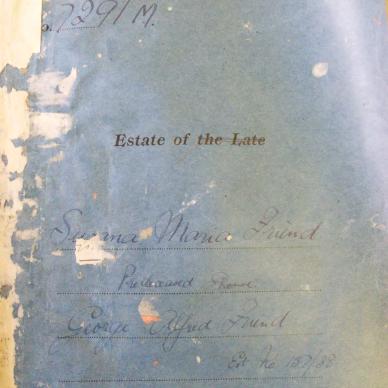 7291 M.
Estate of the Late
Susanna Maria Friend
Predeceased Spouse
George Alfred Friend
Est No 157/38